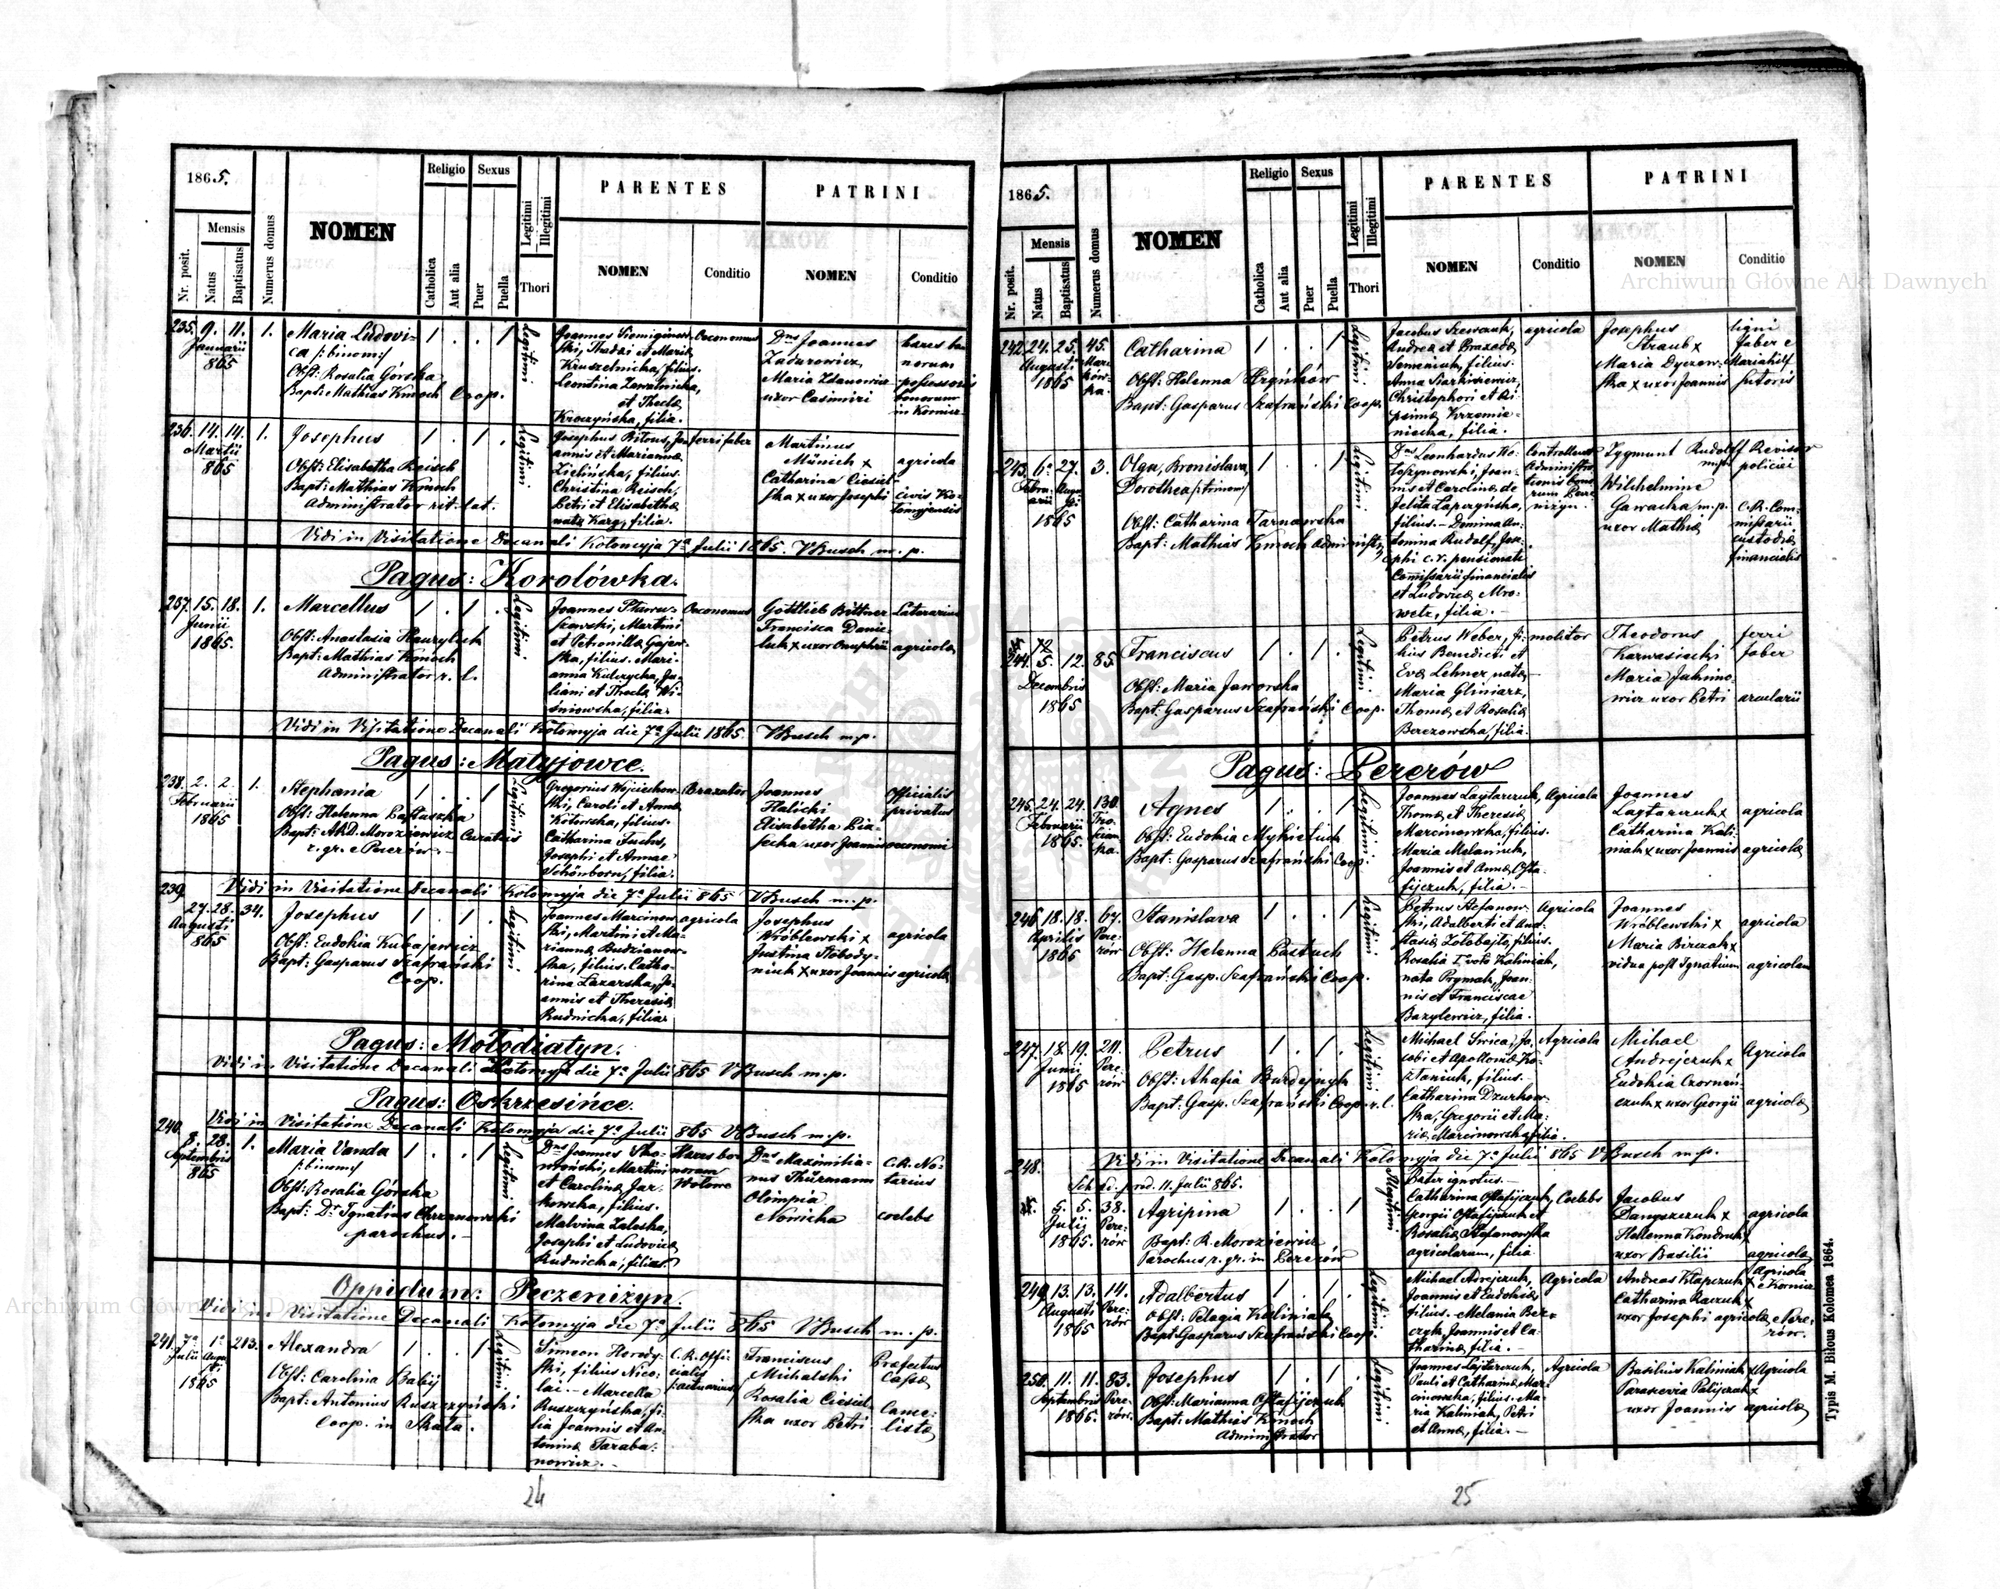 1865.
Nr. posit.
Mensis
Natus
Baptisatus
Numerus domus
NOMEN
Religio
Catholica
Aut alia
Sexus
Puer
Puella
Legitimi
Illegitimi
Thori
PARENTES
NOMEN
Conditio
PATRINI
NOMEN
Conditio
235. 9. 11. 1.
Januarii
865
Maria Ludovi-
ca /:binom:/
Obst: Rosalia Górska
Bapt: Mathias Kmoch Coop.
Legitimi
Kruszelnicka, filius.
et Theclæ
Kroczyńska, filia.
Oeconomus
Dns Joannes
Maria Zdanowicz
uxor Casimiri
bonorum
236. 14. 14. 1.
Martii
865
Josephus
Obst: Elisabetha Reisch
Bapt: Mathias Kmoch
Administrator rit. lat.
Legitimi
Josephus Bitous, Jo-
annis et Mariannæ
Zielińska, filius.
Christina Reisch,
Petri et Elisabethæ
natæ Karg, filia.
ferri faber
Martinus
Münich x
Catharina Ciesiel-
ska x uxor Josephi
agricola
civis Ko-
lomyjensis
Vidi in Visitatione Decanali Kolomyja 7a Julii 1865. VBusch m.p.
Pagus: Korolówka.
237. 15. 18. 1.
Junii
1865.
Marcellus
Obst: Anastasia Hawryluk
Bapt: Mathias Kmoch
Administrator r. l.
Legitimi
szewski, Martini
et Petronillæ Gajew-
ska, filius. Mari-
anna Kulczycka, Ju-
liani et Theclæ Wi-
śniowska, filia.
Oeconomus
Gottlieb Bittner
Francisca Danie-
luk x uxor Onuphrii
agricola
Vidi in Visitatione Decanali Kolomyja die 7a Julii 1865. VBusch m.p.
Pagus: Matyjowce.
238. 2. 2. 1.
Februarii
1865
Stephania
Obst: Helenna Pastuszka
Bapt: A.R.D. Moroziewicz Curatus
r. gr. e Pererów.
Legitimi
Gregorius Wojciechow-
ski, Caroli et Annæ
Kotowska, filius.
Catharina Fuchs,
Josephi et Annae
Schönborn, filia.
Braxator
Joannes
Halicki
Elisabetha Pia-
secka uxor Joannis
Officialis
privatus
oeconomi
239. Vidi in Visitatione Decanali Kolomyja die 7a Julii 865 VBusch m.p.
27. 28. 34.
Augusti
865
Josephus
Obst: Eudokia Kubajewicz
Bapt: Gasparus Szafrański
Coop.
Legitimi
Joannes Marcinow-
ski, Martini et Ma-
riannæ Budzianow-
ska, filius. Catha-
rina Lazarska, Jo-
annis et Theresiæ
Rudnicka, filia.
agricola
Josephus
Wróblewski x
Justina Slobody-
niuk x uxor Joannis
agricola
agricolæ
Pagus: Mołodiatyn.
Vidi in Visitatione Decanali Kolomyja die 7a Julii 865 VBusch m.p.
Pagus: Oskrzesińce.
Vidi in Visitatione Decanali Kolomyja die 7a Julii 865 VBusch m.p.
240.
8. 28. 1.
Septembris
865
Maria Vanda
/:binom:/
Obst: Rosalia Górska
Bapt: Dr Ignatius Chrzanowski
parochus.
Legitimi
Dns Joannes
Martini
et Carolinæ Jar-
kowska, filius.
Malvina Zaleska,
Josephi et Ludovicæ
Rudnicka, filia.
Hæres bo-
norum
Dns Maximilia-
nus Thürmann
Olimpia
Nowicka
C.R. No-
tarius
coelebs
Oppidum: Peczeniżyn.
Vidi in Visitatione Decanali Kolomyja die 7a Julii 865 VBusch m.p.
241. 7a 1a 213.
Julii Augusti
1865
Alexandra
Obst: Carolina Babij
Bapt: Antonius Ruszczyński
Coop. in Skała.
Legitimi
Simeon Horody-
ski, filius Nico-
lai — Marcella
Ruszczyńska, fi-
lia Joannis et An-
toninæ Taraba-
nowicz.
C.R. Offi-
cialis
Franciscus
Michalski
Rosalia Ciesiel-
ska uxor Petri
Præfectus
Cassæ
Came-
listæ
24
1865.
Nr. posit.
Mensis
Natus
Baptisatus
Numerus domus
NOMEN
Religio
Catholica
Aut alia
Sexus
Puer
Puella
Legitimi
Illegitimi
Thori
PARENTES
NOMEN
Conditio
PATRINI
NOMEN
Conditio
242. 24. 25. 45.
Augusti
1865
Catharina
Obst: Helenna Hryńków
Bapt: Gasparus Szafrański Coop.
Legitimi
Jacobus Szewczuk,
Andreæ et Praxedæ
Semeniuk, filius.
Christophori et
filia.
agricola
Josephus
Straub x
ska x uxor Joannis
ligni
faber e
Mariahilf
sutoris
243. 6. 27. 3.
1865
Olga, Bronislava,
Dorothea /:trinom:/
Obst: Catharina Tarnawska
Bapt: Mathias Kmoch Administr.
Legitimi
Dns Leonhardus
Joan-
nis et Carolinæ de
filius. — Domina An-
tonina Rudolf, Jose-
phi c.r. pensionati
Comissarii financialis
et Ludovicæ Mro-
wetz, filia.
Controllens
Zygmunt Rudolf
m.p.
Wilhelmine
Gawacka m.p.
uxor Mathiæ
Revisor
policiai
C.R. Com-
missarii
custodiæ
financialis
244. 5. 12. 85.
Decembris
1865
Franciscus
Obst: Maria Jaworska
Bapt: Gasparus Szafrański Coop.
Legitimi
Petrus Weber, fi-
lius Benedicti et
Evæ Lehner natæ.
Maria Gliniarz,
Thomæ et Rosaliæ
Berezowska, filia.
molitor
Theodorus
Karwasiecki
Maria Juchno-
wicz uxor Petri
ferri
faber
arcularii
Pagus: Pererów
245. 24. 24. 130.
Februarii
1865.
Agnes
Obst: Eudokia Mykietiuk
Bapt: Gasparus Szafrański Coop.
Legitimi
Joannes Lajtarczuk,
Thomæ et Theresiæ
Marcinowska, filius.
Maria Melaniuk,
Joannis et Annæ Osta-
fijczuk, filia.
Agricola
Joannes
Lajtarczuk x
Catharina Kali-
niak x uxor Joannis
agricola
agricolæ
246. 18. 18. 67.
Aprilis
1865
Pere-
rów
Stanislava
Obst: Helenna Pastuch
Bapt: Gasp. Szafrański Coop.
Legitimi
Petrus Stefanow-
ski, Adalberti et Ana-
stasiæ Zolobajlo, filius.
Rosalia 1o voto Kaliniak,
nata Prymak, Joan-
nis et Franciscae
Bazylewicz, filia.
Agricola
Joannes
Wróblewski x
Maria Birczak x
vidua post Ignatium
agricola
agricolam
247. 18. 19. 211.
Junii
1865
Pere-
rów
Petrus
Obst: Ahafia Burdejnyk
Bapt: Gasp. Szafrański Coop. r.l.
Legitimi
Michael Swica, Ja-
cobi et Apolloniæ Ko-
sztaniuk, filius.
Catharina Dzurkow-
ska, Gregorii et Ma-
riæ Marcinowska filia.
Agricola
Michael
Andrejczuk x
Eudokia Czorneń-
czuk x uxor Georgii
Agricola
agricolæ
248. Vidi in Visitatione Decanali Kolomyja die 7a Julii 865 VBusch m.p.
5. 5. 38.
Julij
1865.
Pere-
rów
Agripina
Bapt: R. Moroziewicz
Parochus r. gr. in Pererów
Illegitimi
Pater ignotus.
Catharina Ostafijczuk,
Georgii Ostafijczuk et
Rosaliæ Stefanowska
agricolarum, filia
Coelebs
Jacobus
Danyszczuk x
Helenna Kondruk x
uxor Basilii
agricola
agricolæ
249. 13. 13. 14.
Augusti
1865
Pere-
rów
Adalbertus
Obst: Pelagia Kaliniak
Bapt: Gasparus Szafrański Coop.
Legitimi
Michael Andrejczuk,
Joannis et Eudokiæ
filius. Melania Ber-
czyk, Joannis et Ca-
tharinæ, filia.
Agricola
Andreas Klapczuk x
Catharina Raczuk x
uxor Josephi agricolæ e Pere-
rów.
agricola
250. 11. 11. 83.
Septembris
1865.
Pere-
rów.
Josephus
Obst: Marianna Ostafijczuk
Bapt: Mathias Kmoch
Administrator
Legitimi
Joannes Lajtarczuk,
Pauli et Catharinæ Mar-
cinowska, filius. Ma-
ria Kaliniak, Petri
et Annæ, filia.
Agricola
Basilius Kaliniak x
Parascevia Palijczuk x
uxor Joannis
Agricola
agricolæ
Typis M. Bilous Kolomea 1864.
25
Archiwum Główne Akt Dawnych
Archiwum Główne Akt Dawnych